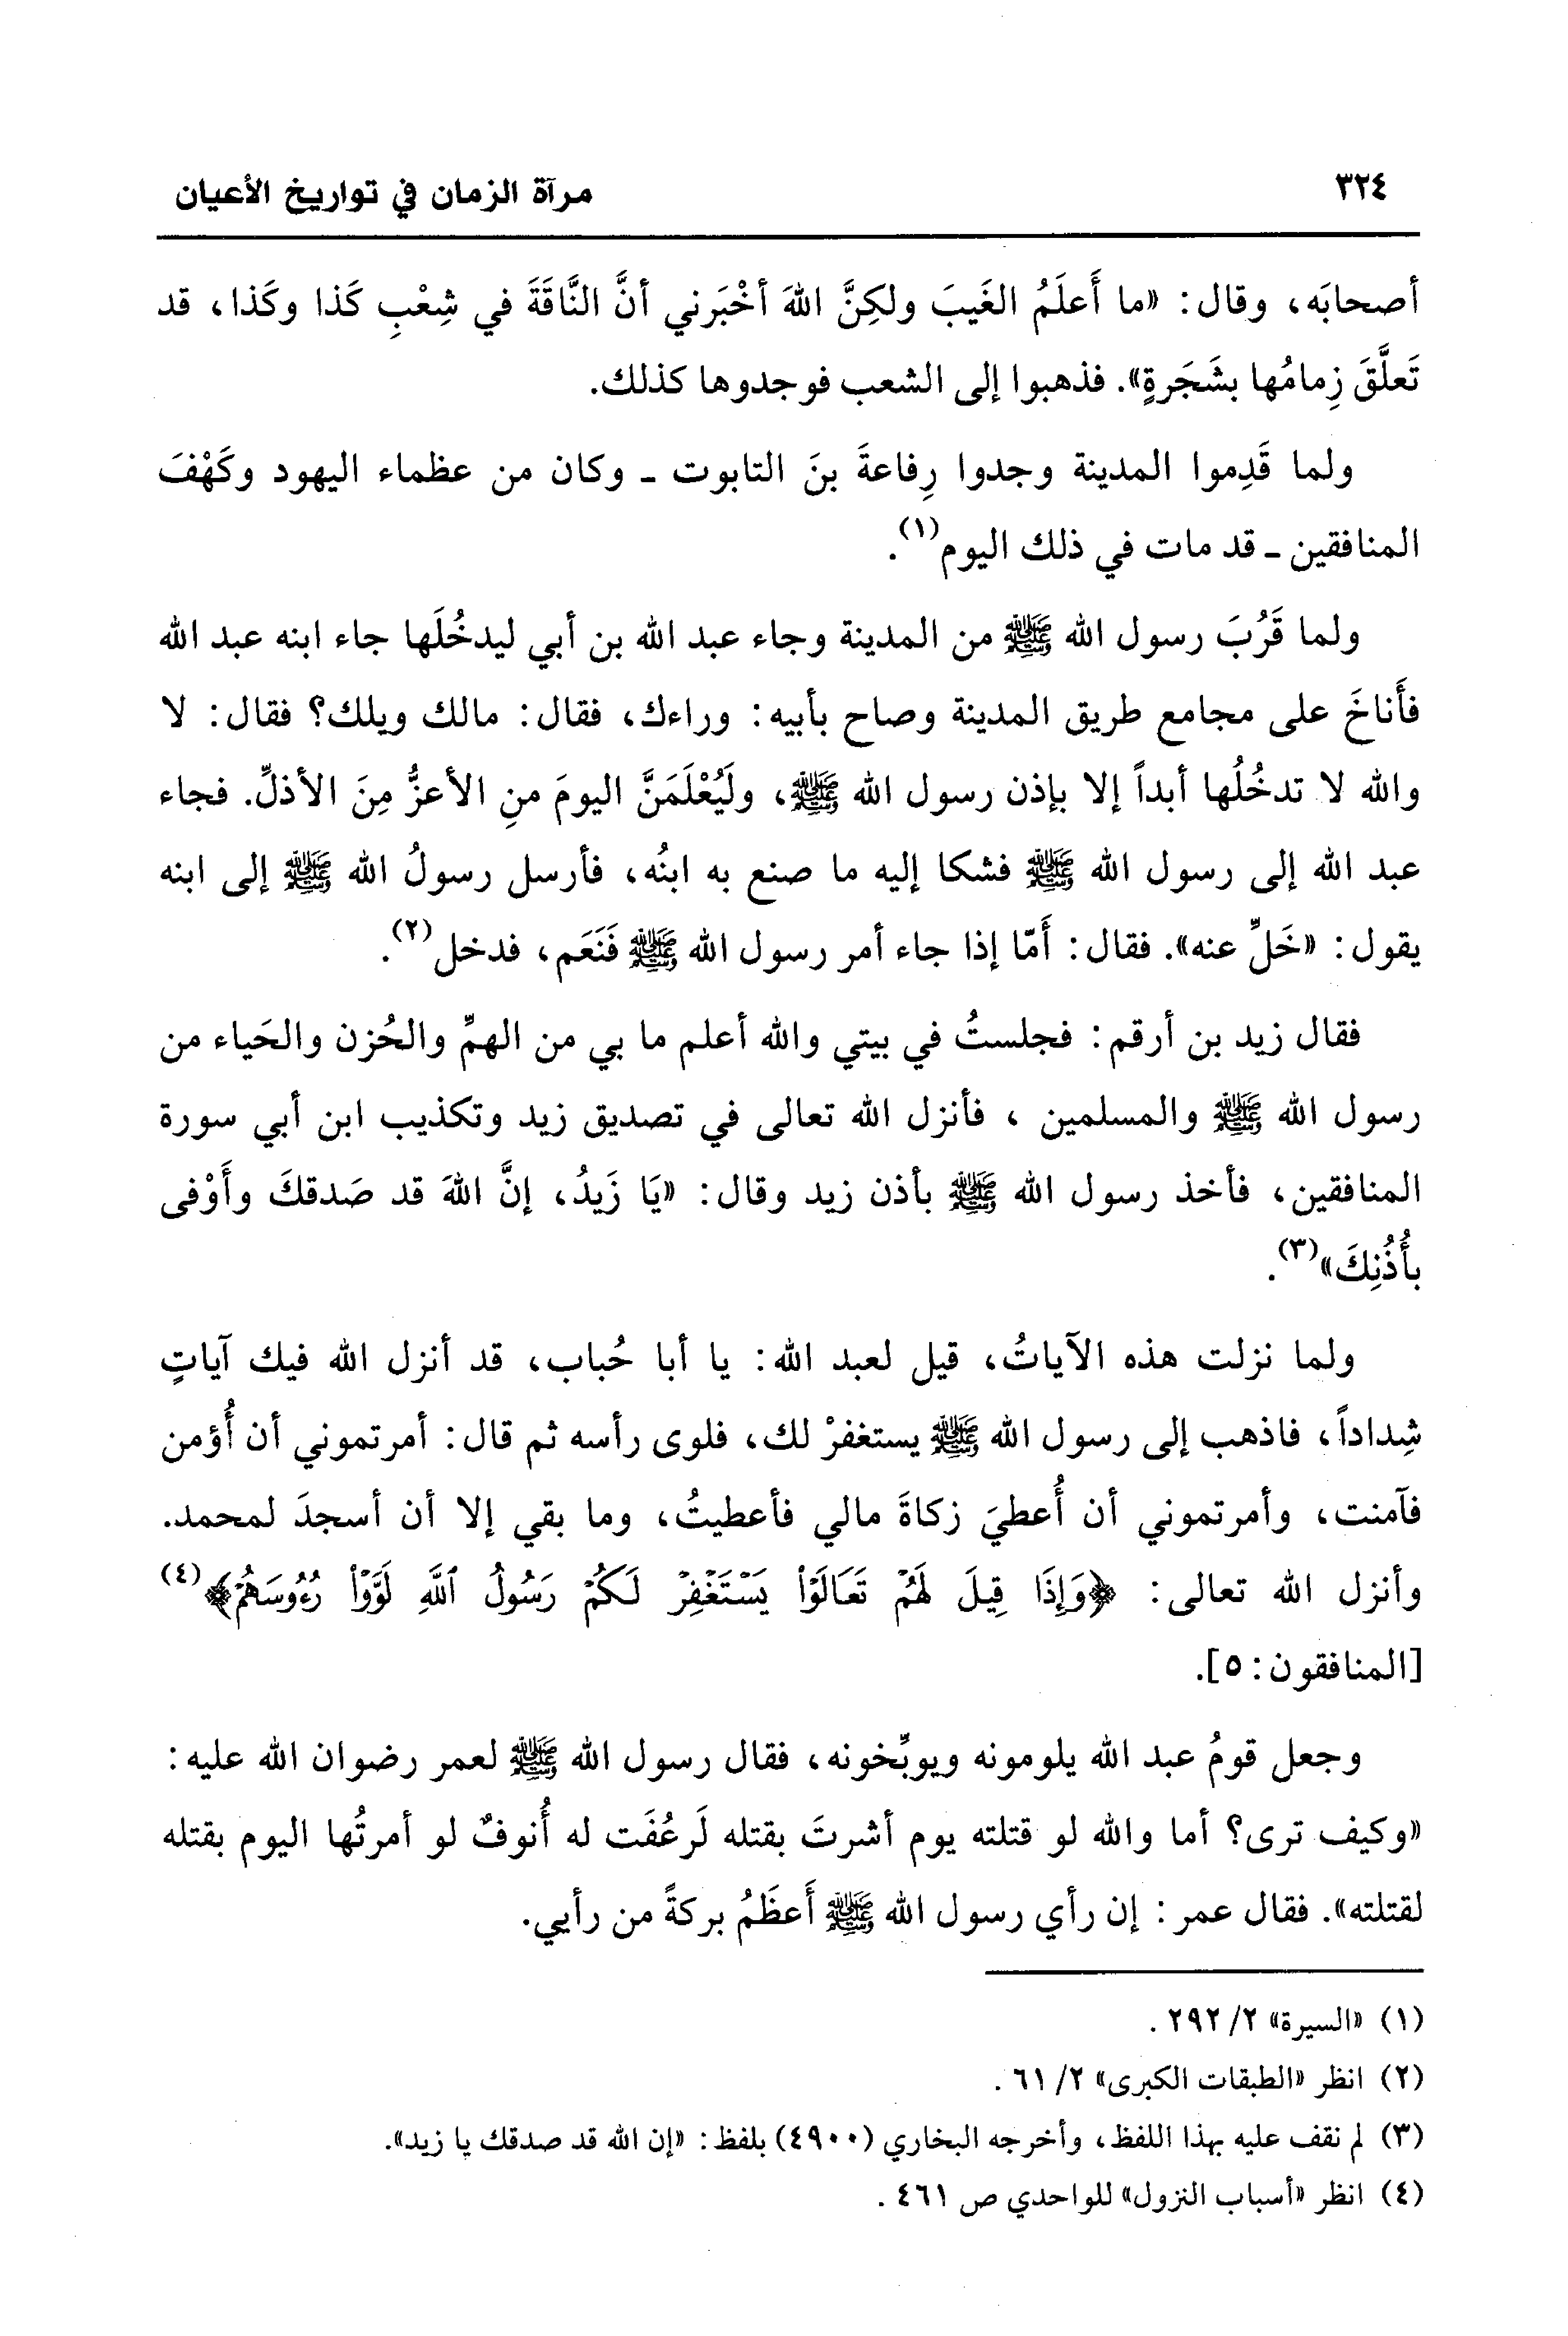 ٣٢٤ مرآة الزمان في تواريخ الأعيان
أصحابَه، وقال: «ما أَعلَمُ الغَيبَ ولكِنَّ اللهَ أخْبَرني أنَّ النَّاقَةَ في شِعْبِ كَذا وكَذا، قد
تَعلَّقَ زِمامُها بشَجَرةٍ». فذهبوا إلى الشعب فوجدوها كذلك.
ولما قَدِموا المدينة وجدوا رِفاعةَ بنَ التابوت ـ وكان من عظماء اليهود وكَهْفَ
المنافقين ـ قد مات في ذلك اليوم(١).
ولما قَرُبَ رسول الله ﷺ من المدينة وجاء عبد الله بن أبي ليدخُلَها جاء ابنه عبد الله
فأَناخَ على مجامع طريق المدينة وصاح بأبيه: وراءك، فقال: مالك ويلك؟ فقال: لا
والله لا تدخُلُها أبداً إلا بإذن رسول الله ﷺ، ولَيُعْلَمَنَّ اليومَ منِ الأعزُّ مِنَ الأذلِّ. فجاء
عبد الله إلى رسول الله ﷺ فشكا إليه ما صنع به ابنُه، فأرسل رسولُ الله ﷺ إلى ابنه
يقول: «خَلِّ عنه». فقال: أَمّا إذا جاء أمر رسول الله ﷺ فَنَعَم، فدخل(٢).
فقال زيد بن أرقم: فجلستُ في بيتي والله أعلم ما بي من الهمِّ والحُزن والحَياء من
رسول الله ﷺ والمسلمين ، فأنزل الله تعالى في تصديق زيد وتكذيب ابن أبي سورة
المنافقين، فأخذ رسول الله ﷺ بأذن زيد وقال: «يَا زَيدُ، إنَّ اللهَ قد صَدقكَ وأَوْفى
بأُذُنِكَ»(٣).
ولما نزلت هذه الآياتُ، قيل لعبد الله: يا أبا حُباب، قد أنزل الله فيك آياتٍ
شِداداً، فاذهب إلى رسول الله ﷺ يستغفرْ لك، فلوى رأسه ثم قال: أمرتموني أن أُؤمن
فآمنت، وأمرتموني أن أُعطيَ زكاةَ مالي فأعطيتُ، وما بقي إلا أن أسجدَ لمحمد.
وأنزل الله تعالى: ﴿وَإِذَا قِيلَ لَهُمْ تَعَالَوْا۟ يَسْتَغْفِرْ لَكُمْ رَسُولُ ٱللَّهِ لَوَّوْا۟ رُءُوسَهُمْ﴾(٤)
[المنافقون: ٥].
وجعل قومُ عبد الله يلومونه ويوبِّخونه، فقال رسول الله ﷺ لعمر رضوان الله عليه:
«وكيف ترى؟ أما والله لو قتلته يوم أشرتَ بقتله لَرعُفَت له أُنوفٌ لو أمرتُها اليوم بقتله
لقتلته». فقال عمر: إن رأي رسول الله ﷺ أَعظَمُ بركةً من رأيي.
(١) «السيرة» ٢/ ٢٩٢ .
(٢) انظر «الطبقات الكبرى» ٢/ ٦١ .
(٣) لم نقف عليه بهذا اللفظ، وأخرجه البخاري (٤٩٠٠) بلفظ: «إن الله قد صدقك يا زيد».
(٤) انظر «أسباب النزول» للواحدي ص ٤٦١ .